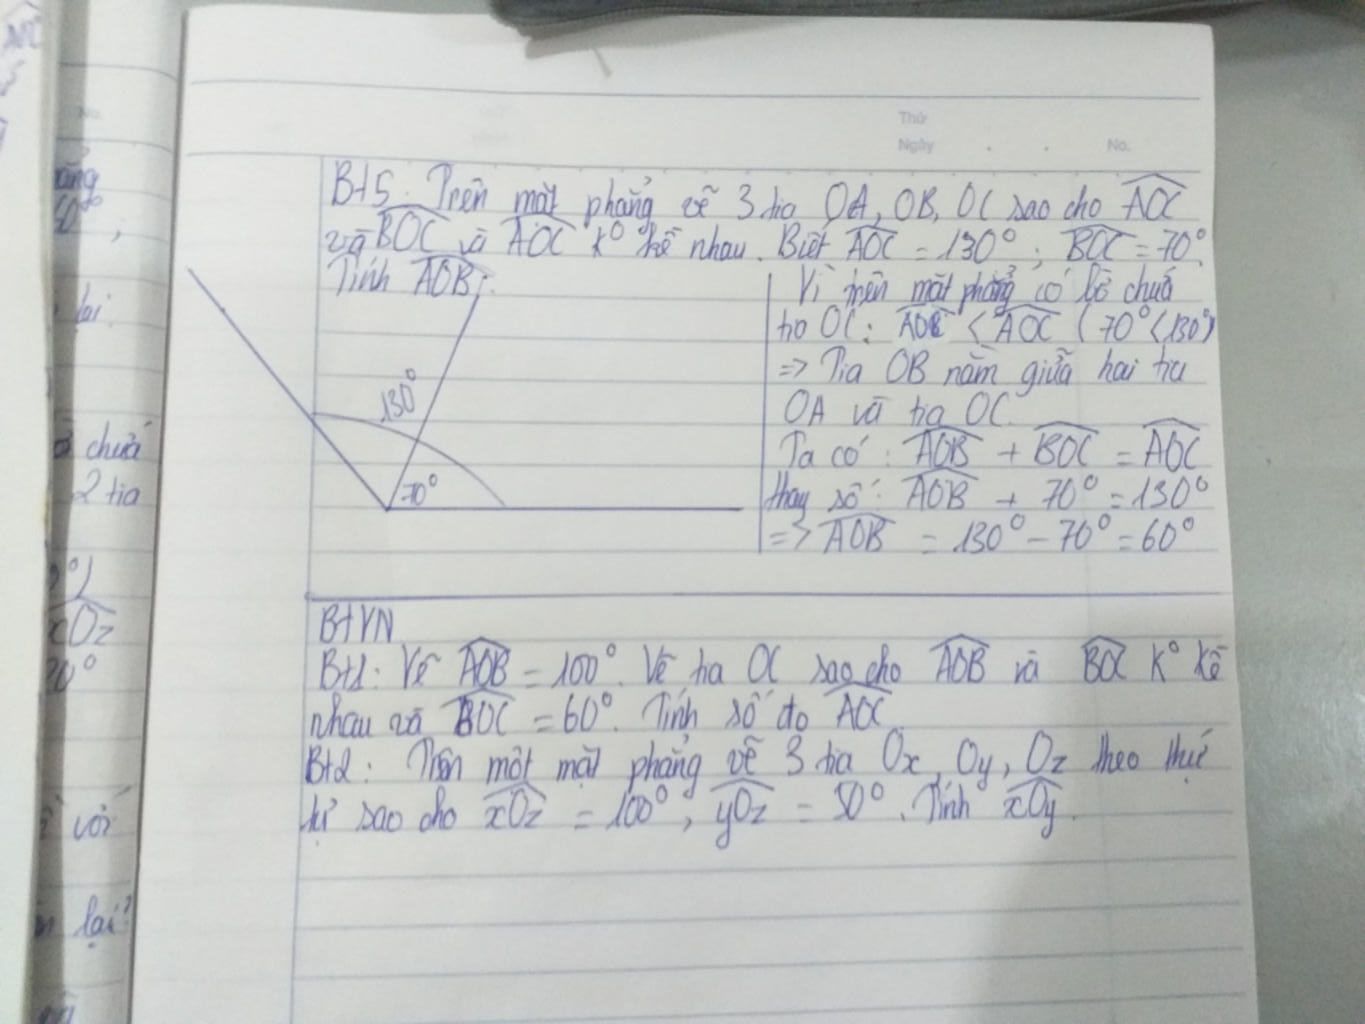 Thứ
Ngày
No.
Bt5. Trên mặt phẳng vẽ 3 tia OA, OB, OC sao cho AOC
và BOC và AOC k° kề nhau. Biết AOC = 130° ; BOC = 70°.
Tính AOB:
130°
70°
Vì trên mặt phẳng có bờ chứa
tia OC: < AOC (70° < 130°)
=> Tia OB nằm giữa hai tia
OA và tia OC.
Ta có: AOB + BOC = AOC
thay số: AOB + 70° = 130°
=> AOB = 130° - 70° = 60°
BtVN
Bt1: Vẽ AOB = 100°. Vẽ tia OC sao cho AOB và BOC k° kề
nhau và BOC = 60°. Tính số đo AOC
Bt2: Trên một mặt phẳng vẽ 3 tia Ox, Oy, Oz theo thứ
tự sao cho xOz = 100°, yOz = 50°. Tính xOy.
No.
lai.
chứa
2 tia
xOz
với
lại?